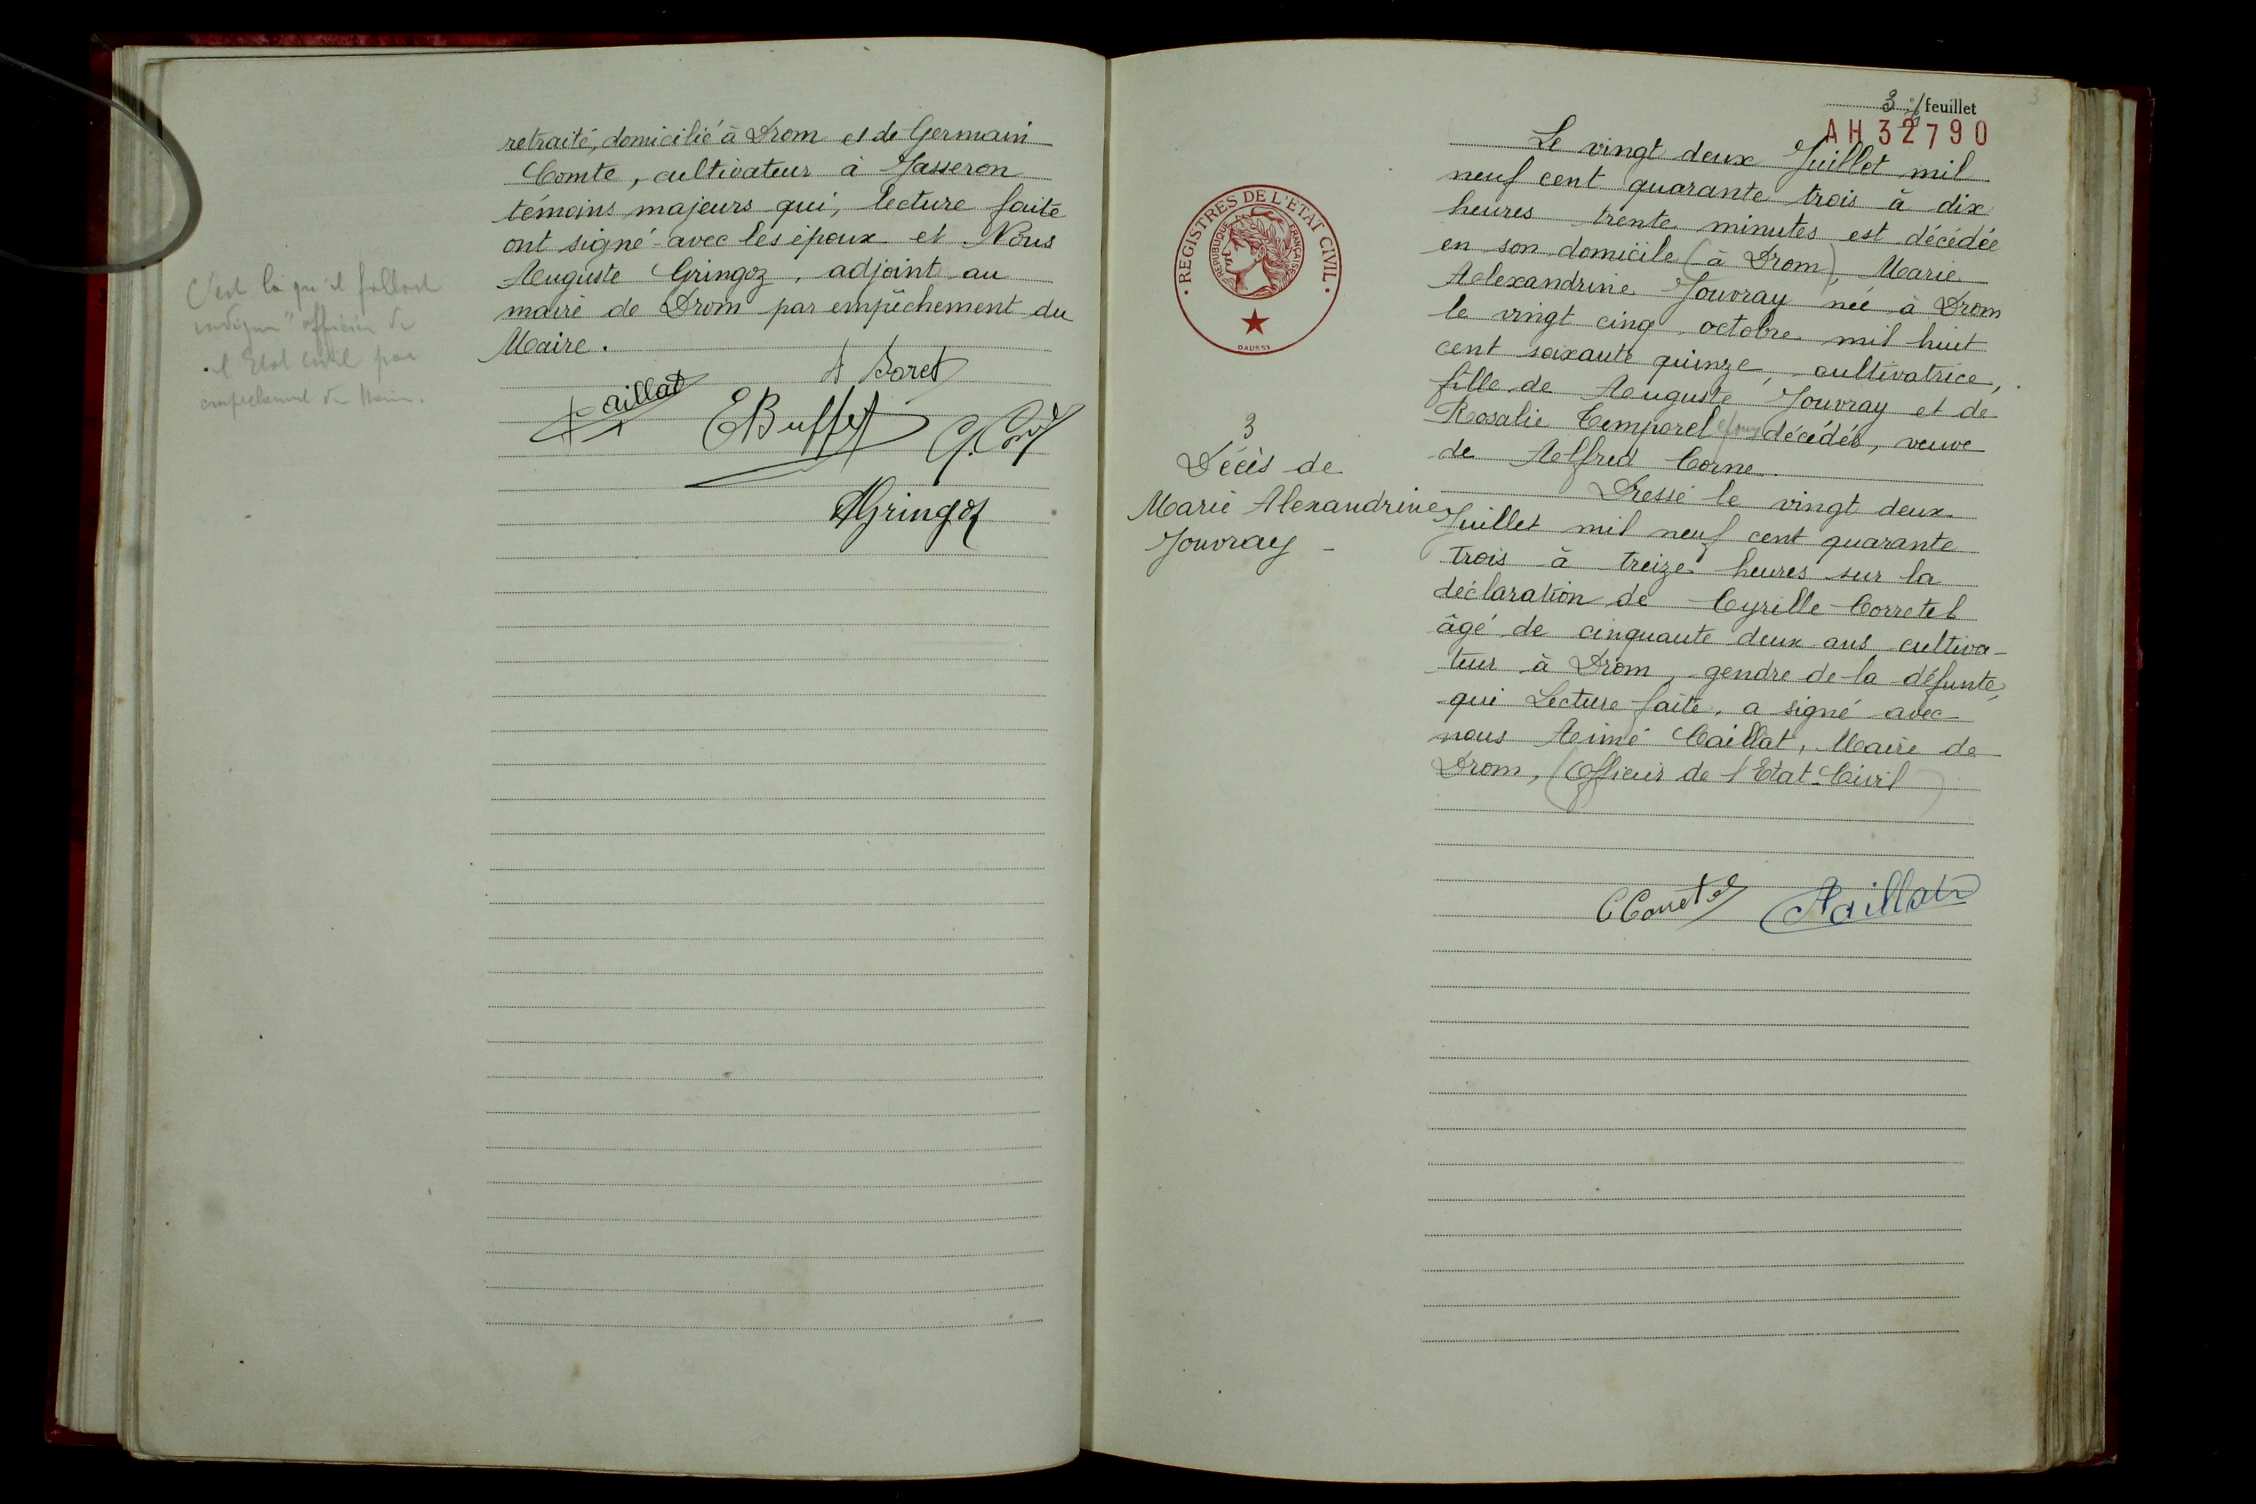 retraité, domicilié à Drom et de Germain
Comte, cultivateur à Jasseron
témoins majeurs qui, lecture faite
ont signé avec les époux et Nous
Auguste Gringoz, adjoint au
maire de Drom par empêchement du
Maire.
C'est là qu'il fallait
officier de
l'Etat Civil par
empêchement du Maire.
A Boret
Caillat
EBuffet
G. Comte
AGringoz
3e feuillet
3
AH 32790
REGISTRES DE L'ETAT CIVIL
REPUBLIQUE FRANÇAISE
DAUSSY
3
Décès de
Marie Alexandrine
Jouvray -
Le vingt deux Juillet mil
neuf cent quarante trois à dix
heures trente minutes est décédée
en son domicile (à Drom) Marie
Alexandrine Jouvray née à Drom
le vingt cinq octobre mil huit
cent soixante quinze, cultivatrice,
fille de Auguste Jouvray et de
Rosalie Temporel époux décédés, veuve
de Alfred Corne.
Dressé le vingt deux
Juillet mil neuf cent quarante
trois à treize heures sur la
déclaration de Cyrille Corretel
âgé de cinquante deux ans cultiva-
teur à Drom, gendre de la défunte,
qui Lecture faite, a signé avec
nous Aimé Caillat, Maire de
Drom, (Officier de l'Etat-Civil)
C Corretel
ACaillat